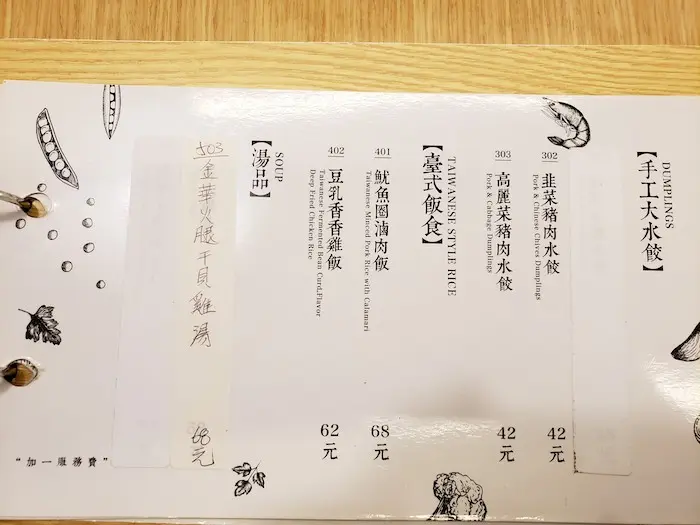 【手工大水餃】
DUMPLINGS
302 韭菜豬肉水餃 42元
Pork & Chinese Chives Dumplings
303 高麗菜豬肉水餃 42元
Pork & Cabbage Dumplings
【臺式飯食】
TAIWANESE STYLE RICE
401 魷魚圈滷肉飯 68元
Taiwanese Minced Pork Rice with Calamari
402 豆乳香香雞飯 62元
Taiwanese Fermented Bean Curd Flavor
Deep Fried Chicken Rice
【湯品】
SOUP
503 金華火腿干貝雞湯 68元
"加一服務費"